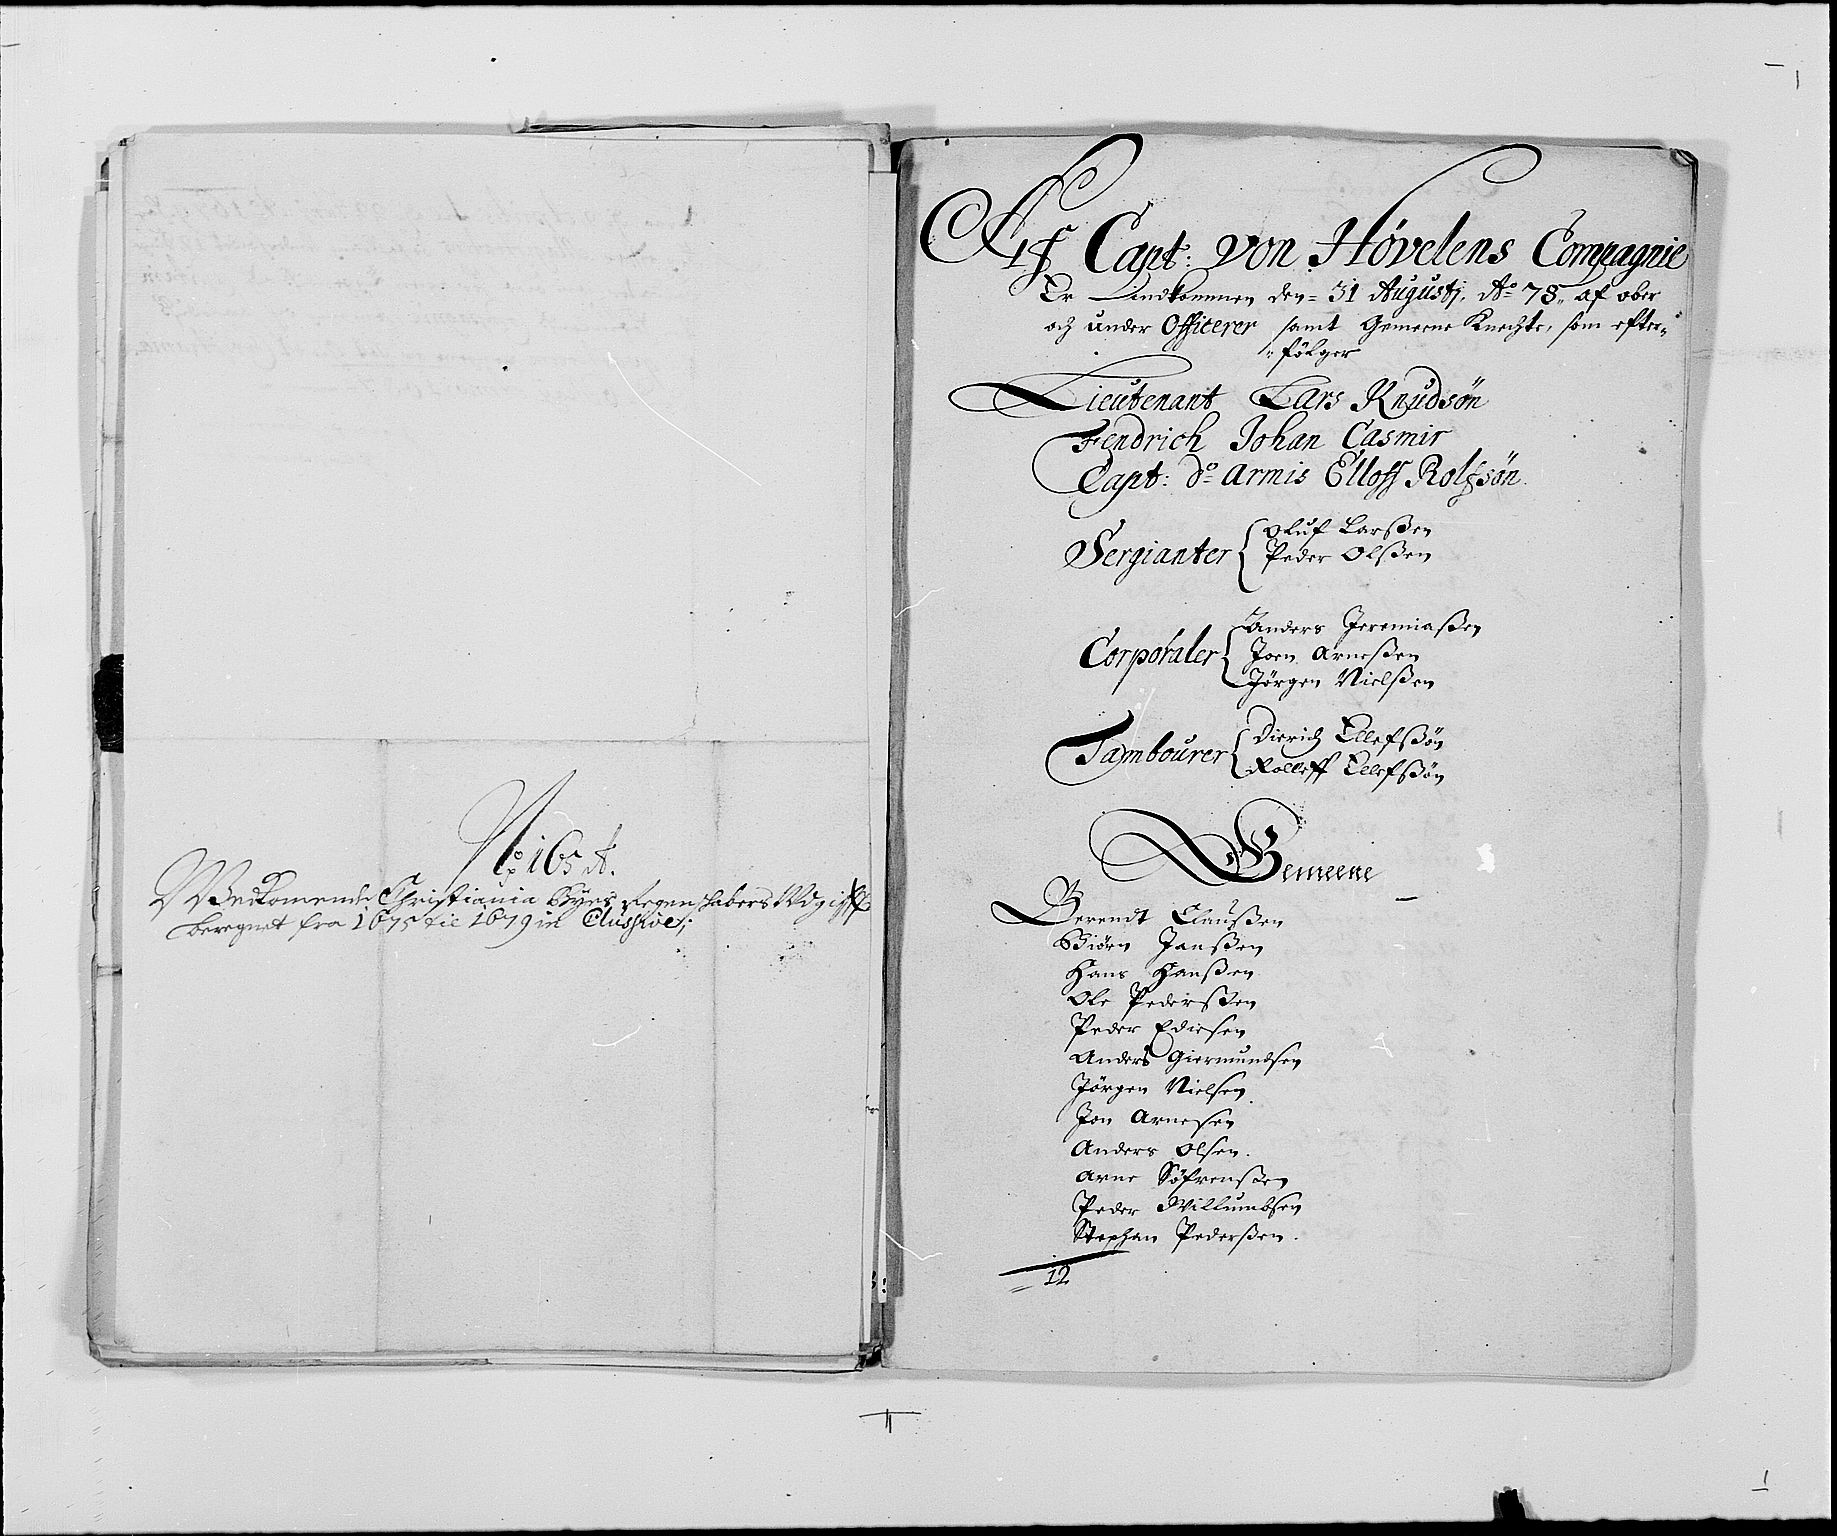 No 165 A.
Vedkomende Christiania Byes Regenskabers Udgift
beregnet fra 1675 til 1679 inclusive;
Af Capt: von Høvelens Compagnie
Er indkommen den 31 Augustj. Ao 78, af ober
och under Officerer samt Gemeene Knechte, som efter=
=følger
Lieutenant Lars Knudsøn
Fendrich Johan Casmir
Capt: de Armis Elloff Rolfsøn
Sergianter
Oluf Larßen
Peder Olßen
Corporaler
Anders Jeremiaßen
Joen Arneßen
Jörgen Nielßen
Tambourer
Dierich Ellefßøn
Rolleff Ellefßøn
Gemeene
Berendt Claußen
Biörn Janßen
Hans Hanßen
Ole Pederßen
Peder Ediesen
Anders Giermundsen
Jörgen Nielsen
Jon Arnesen
Anders Olsen.
Arne Söfrenßen
Peder Willumbsen
Stephan Pederßen.
12